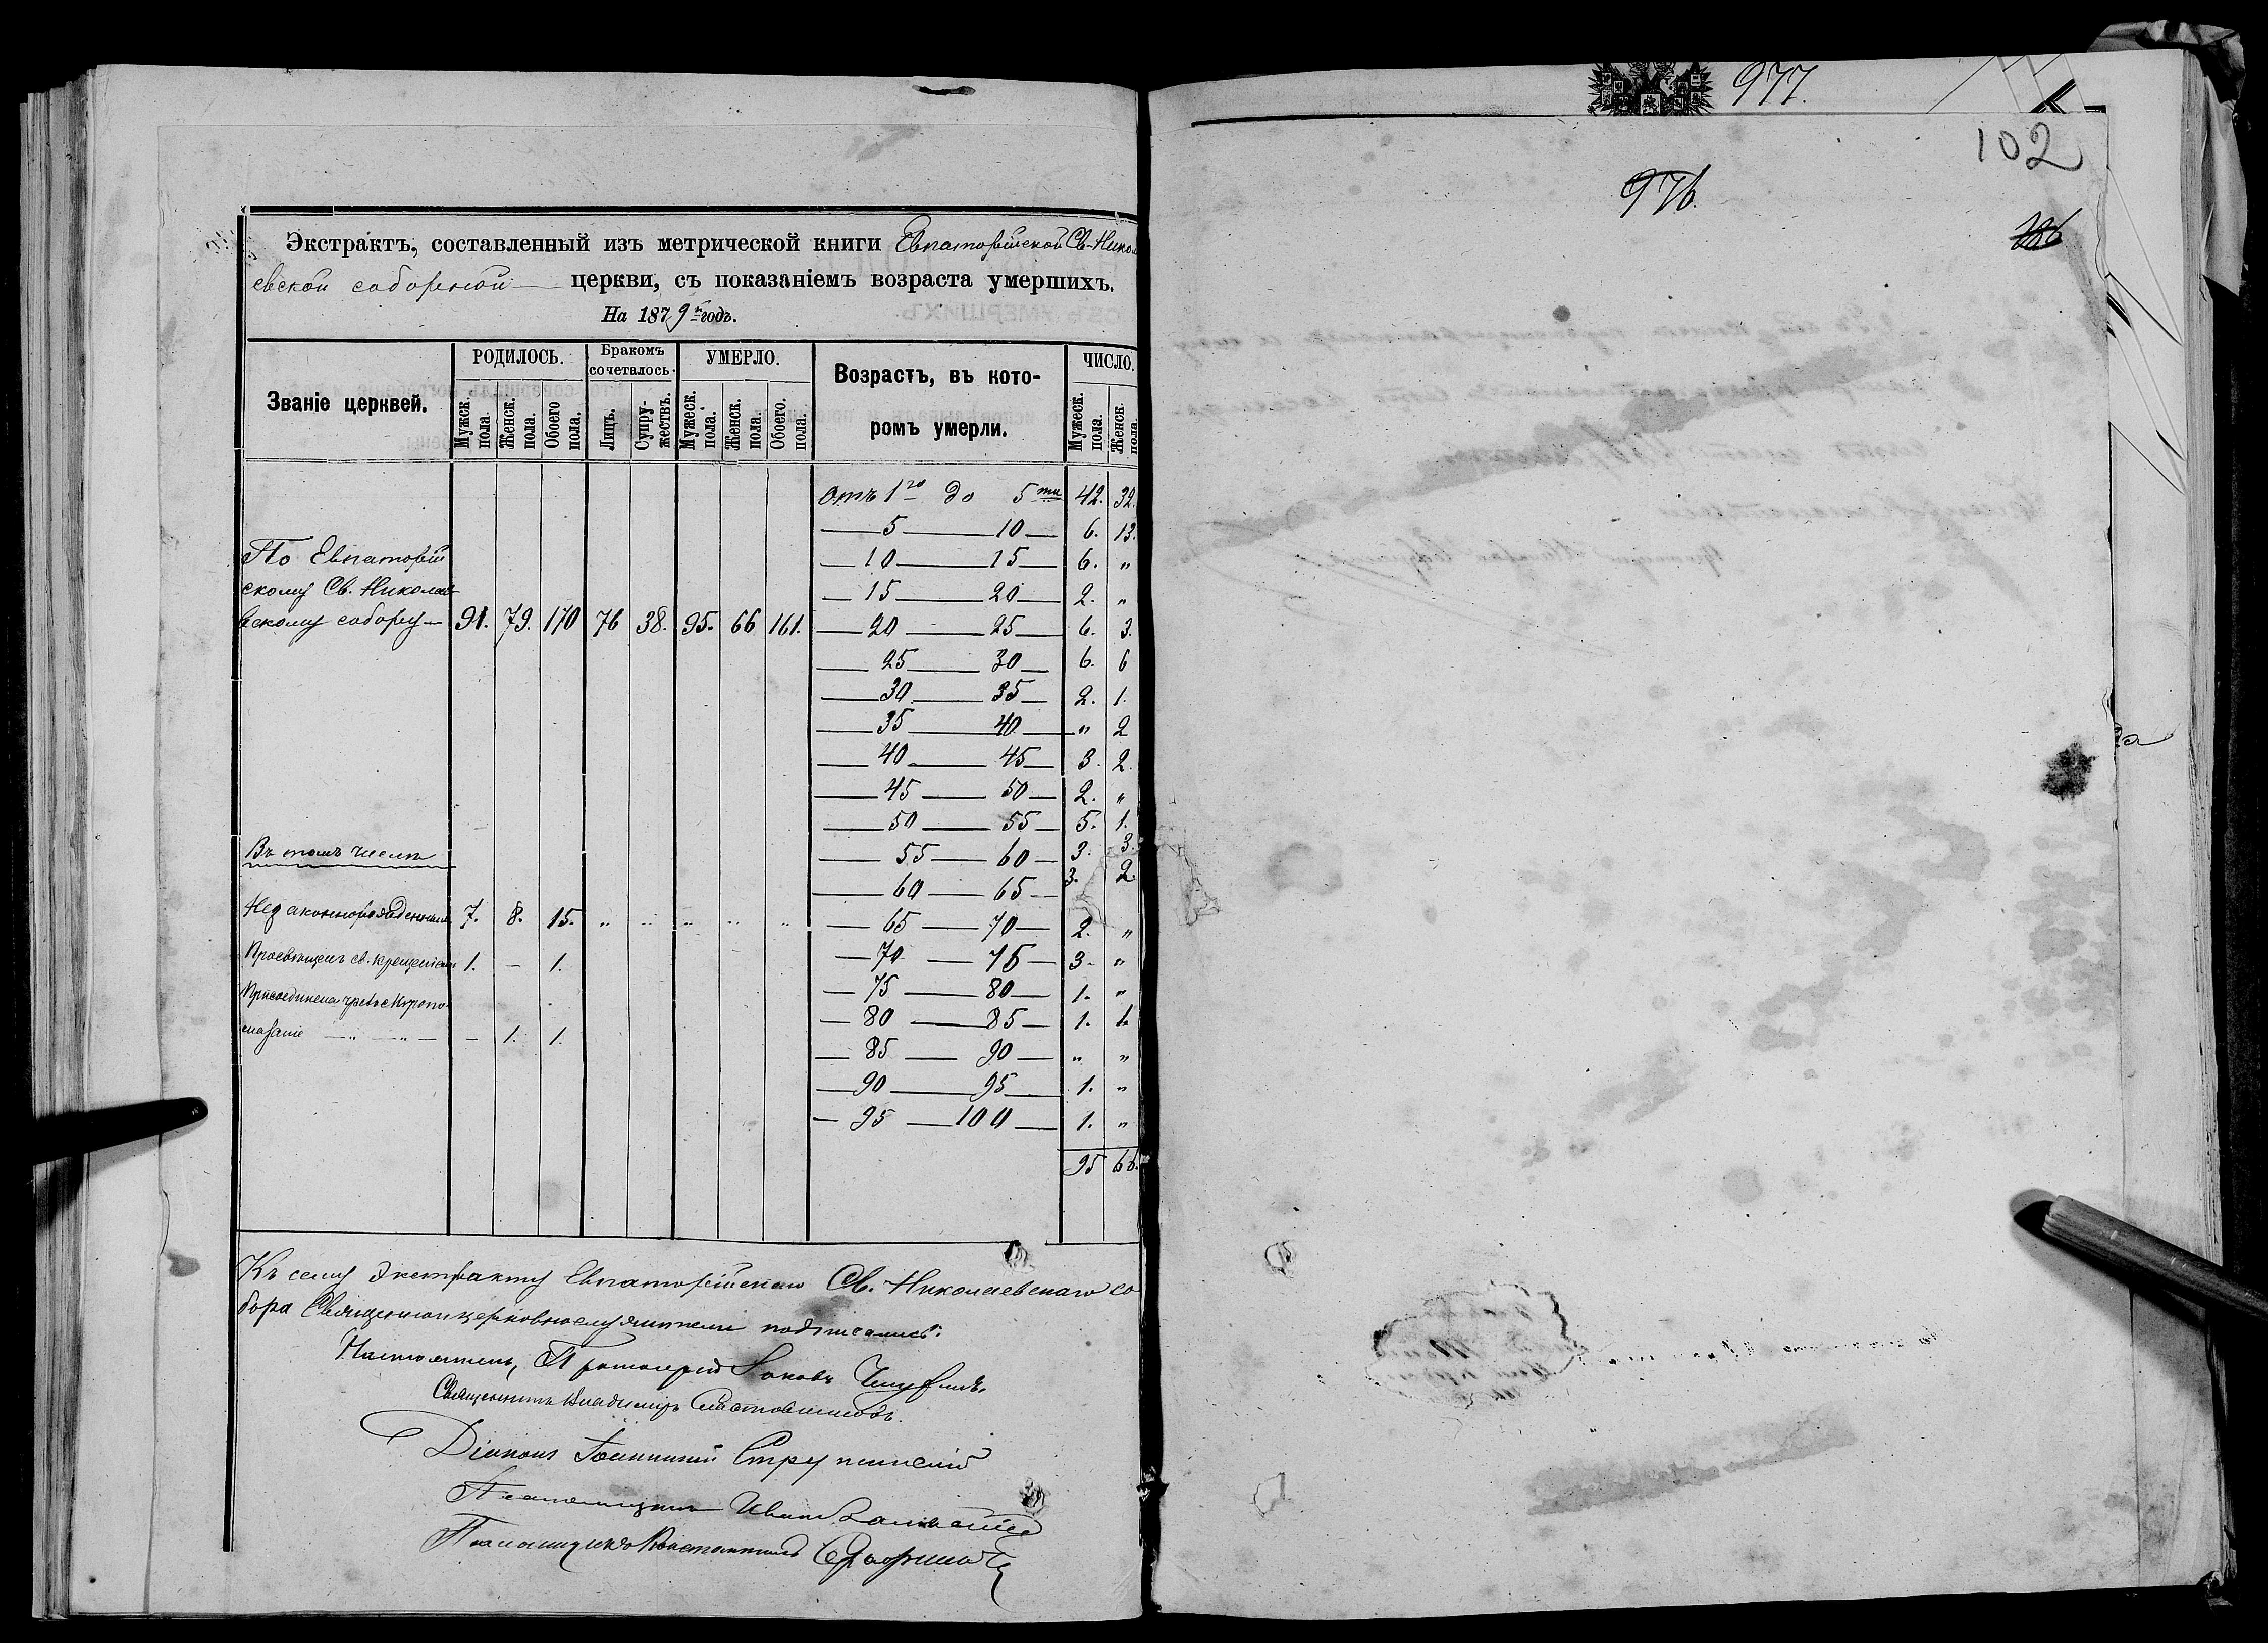 Экстрактъ, составленный изъ метрической книги Евпаторійской Св-Никол
евской соборной церкви, съ показаніемъ возраста умершихъ.
На 1879 й годъ.
Званіе церквей. РОДИЛОСЬ. Бракомъ сочеталось. УМЕРЛО. Возрастъ, въ которомъ умерли. ЧИСЛО.
Мужск. пола. Женск. пола. Обоего пола. Лицъ. Супружествъ. Мужеск. пола. Женск. пола. Обоего. пола. Мужеск. пола. Женск. пола.
Отъ 1 го до 5 ти 42. 32.
5 10 6. 13.
По Евпаторій
10 15 6. "
скому Св. Николае
15 20 2. "
вскому собору 91. 79. 170 76 38. 95. 66 161. 20 25 6. 3.
25 30 6. 6
30 35 2. 1.
35 40 " 2
40 45 3. 2.
45 50 2. "
50 55 5. 1.
Въ томъ числѣ
55 60 3. 3.
60 65 3. 2
Незаконнорожденныхъ 7. 8. 15. " " " " " 65 70 2. "
Просвѣщенъ св. крещеніемъ 1. - 1. 70 75 3. "
Присоединена чрезъ Мѵропо
75 80 1. "
мазаніе - 1. 1.
80 85 1. 1.
85 90 " "
90 95 1. "
95 100 1. "
95 66.
Къ сему экстракту Евпаторійскаго Св. Николаевскаго со
бора Священноицерковнослужители подписались:
Настоятель, Протоіерей Іаковъ
Священникъ Владиміръ
Діаконъ
Псаломщикъ Иванъ
Псаломщикъ Константинъ
977.
102
976.
386